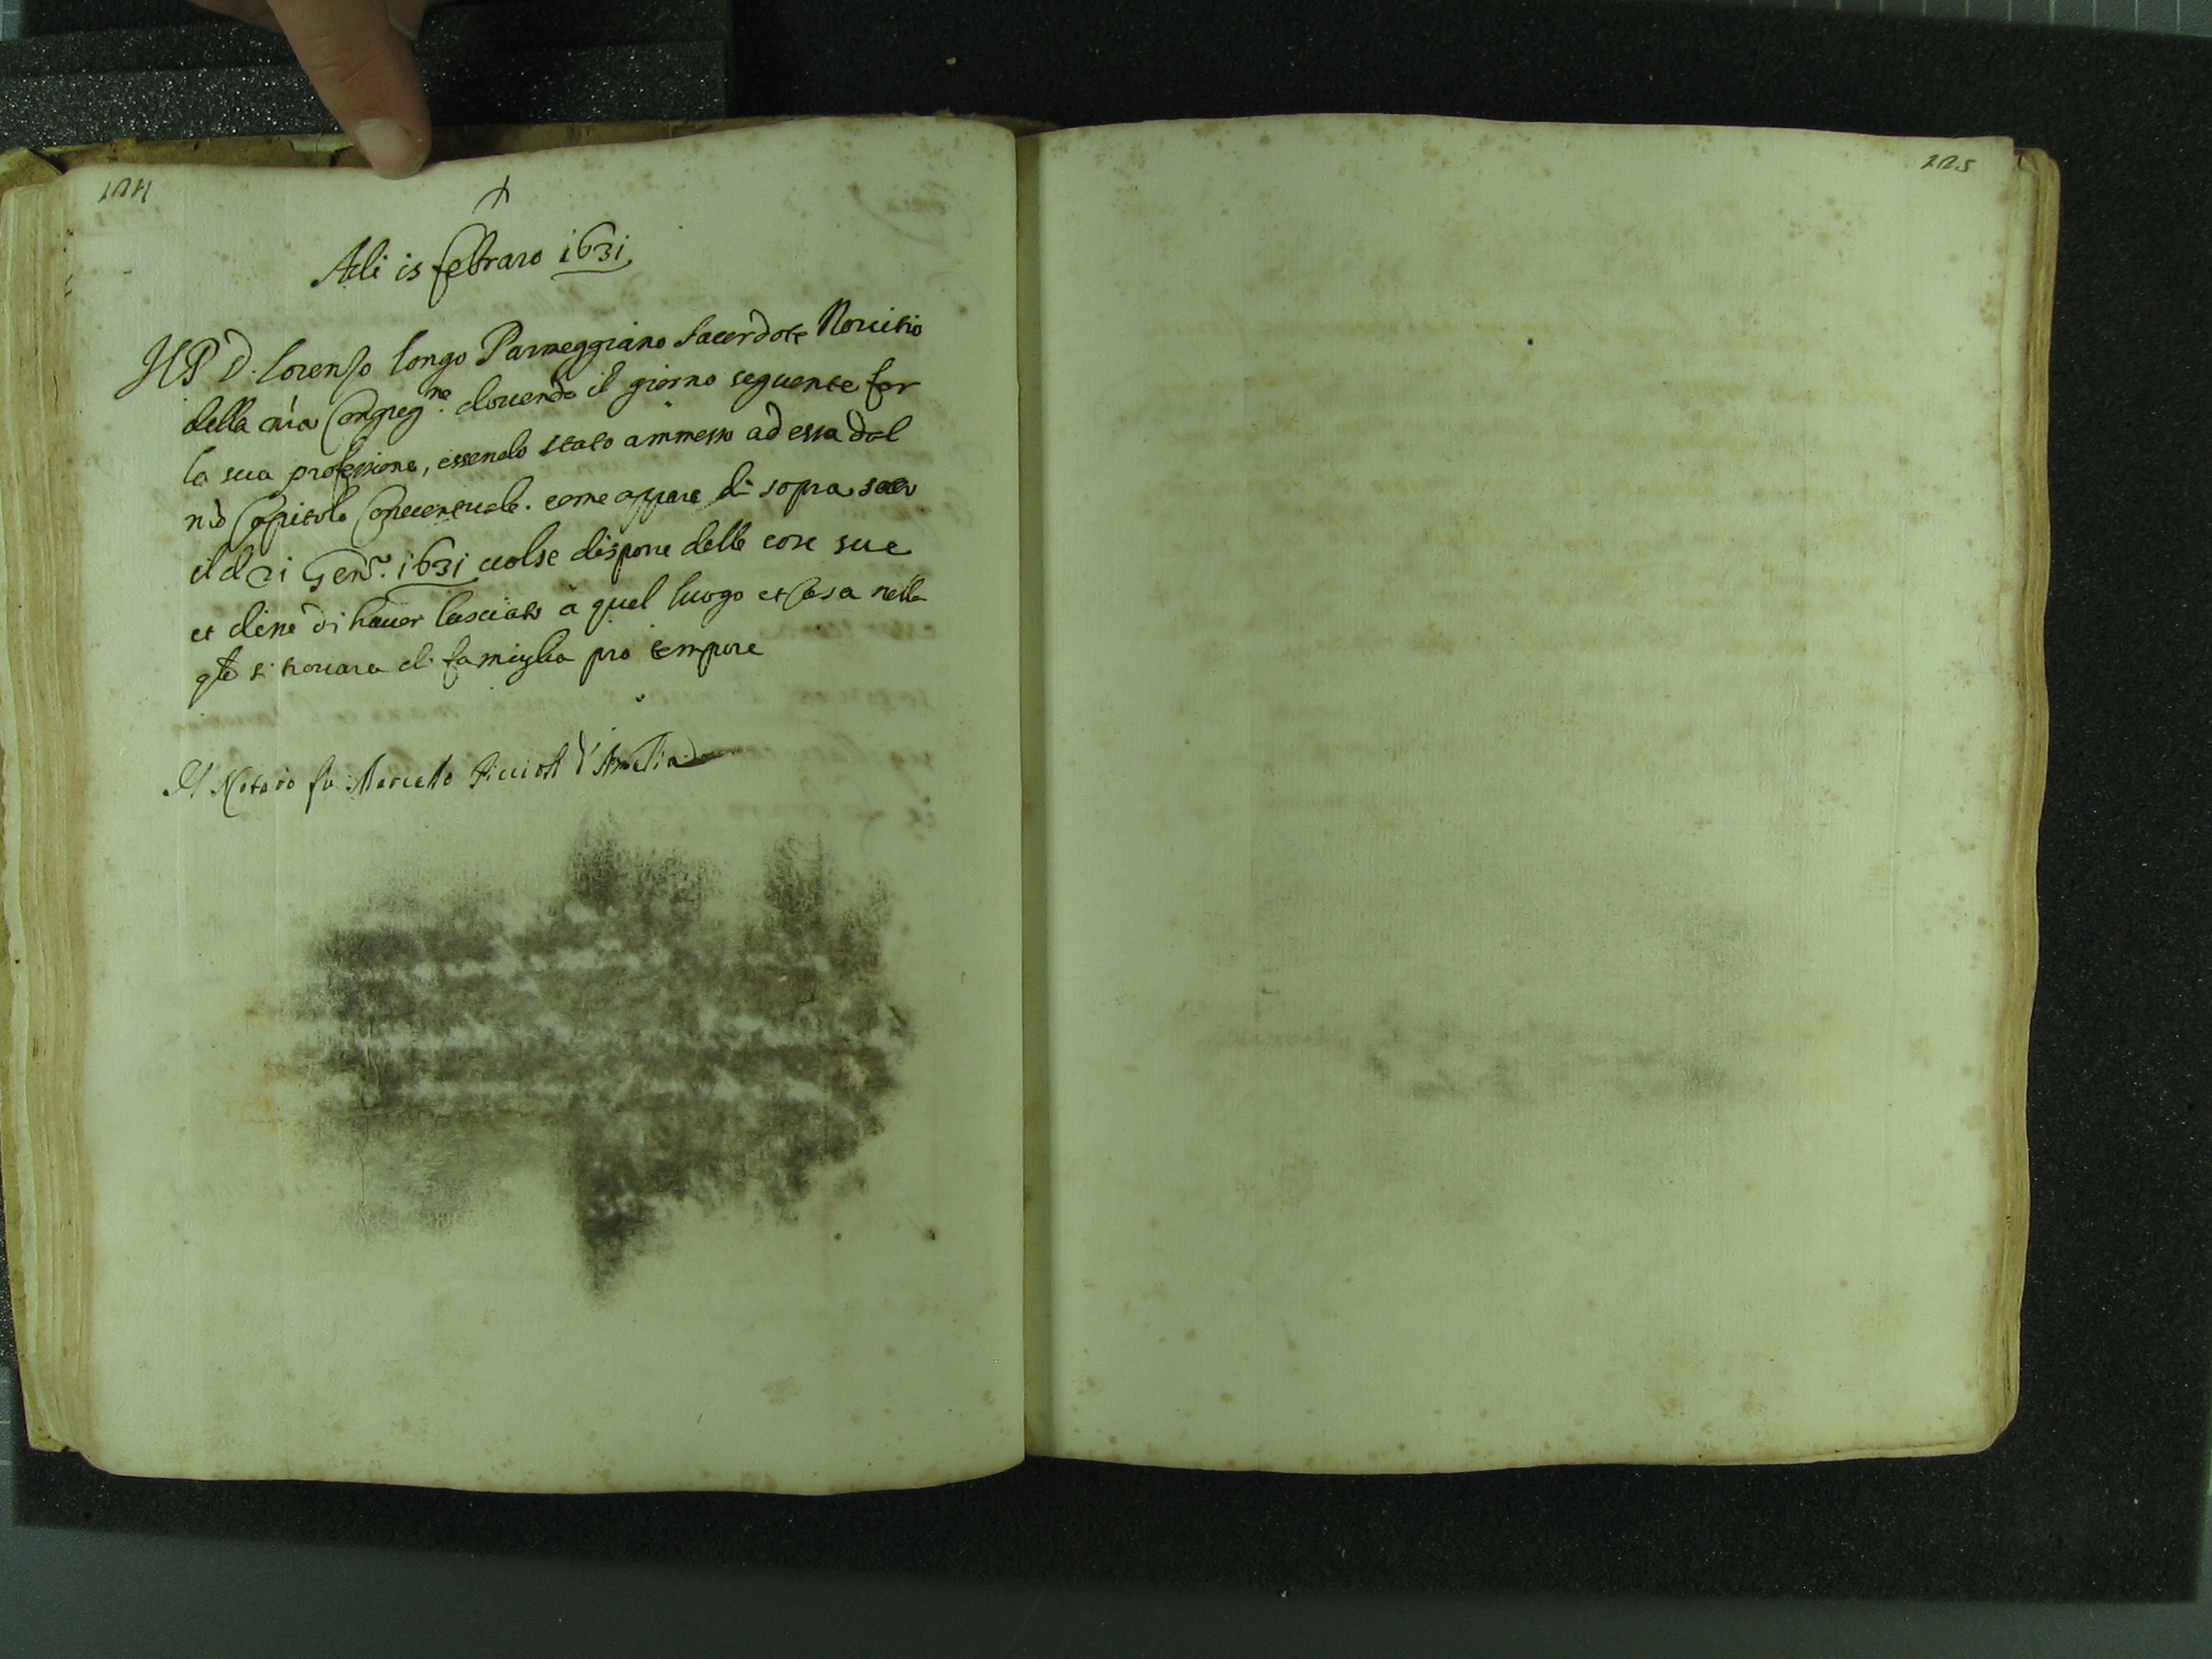 224
Adi 15 febraro 1631
Il P. D. Lorenso Longo Parmeggiano Sacerdote Novitio
della nra Congreg.ne dovendo il giorno seguente far
la sua professione, essendo stato ammesso ad essa dal
nro Capitolo Conventuale. come appare di sopra sotto
il di 21 Gen.ro 1631 volse disporre delle cose sue
et disse di haver lasciato à quel luogo et Casa nella
qle si trovara di famiglia pro tempore
Il Notaro fu Marcello d'Amelia
225